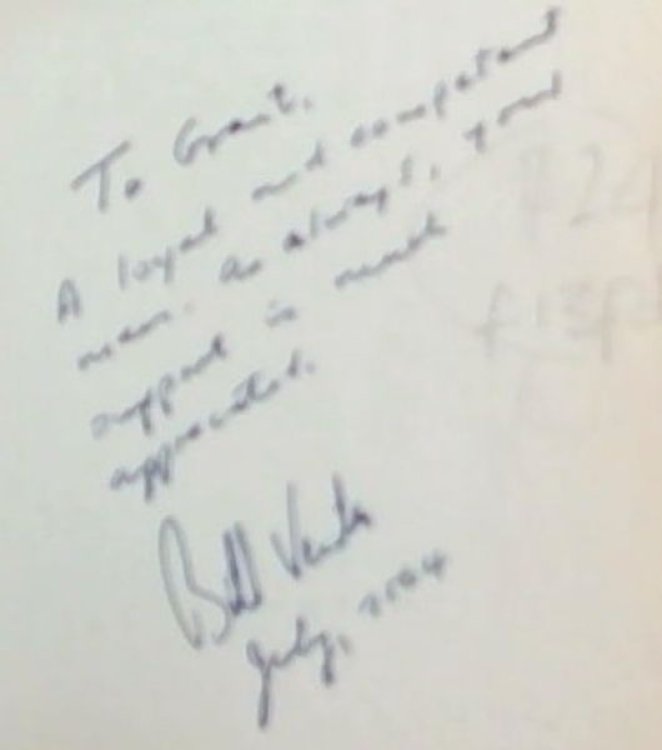 To Grant,
A loyal and competent
man. As always, your
support is much
appreciated.
Bill Venter
July, 2004